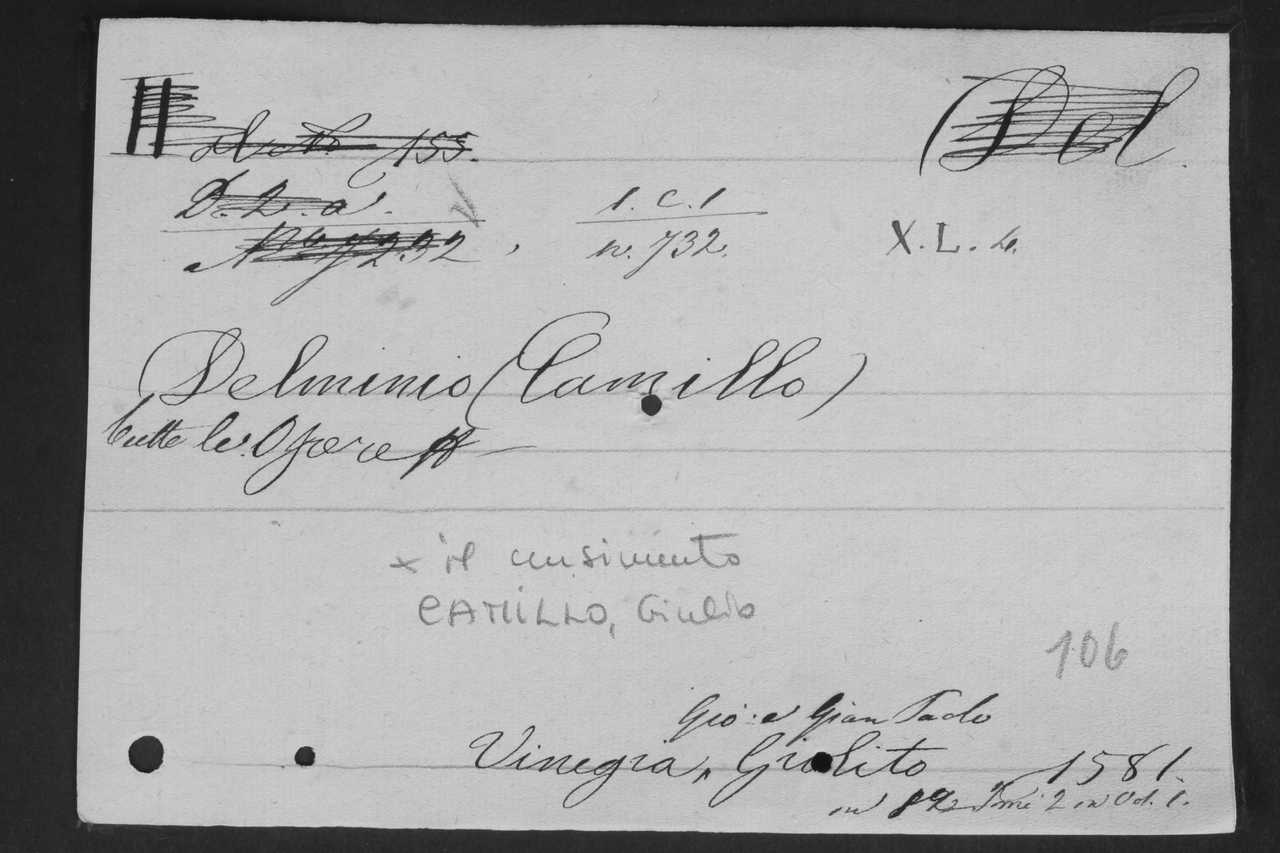 155.
Del
D. L. a.
1. C. 1
n. 732.
X. L. 4.
Delminio (Camillo)
tutte le Opere
x il censimento
CAMILLO, Giulio
106
Gio: e Gian Paolo
Vinegia, Giolito 1581.
in 12 Tomi 2 in Vol. 1.